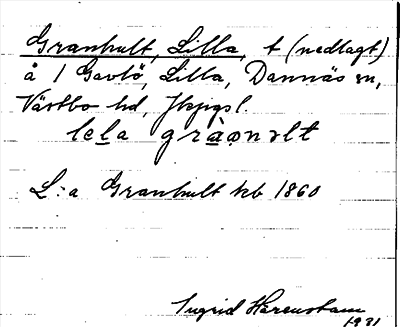 Granhult, Lilla, t (nedlagt)
å 1 Gavlö, Lilla, Dannäs sn,
Västbo hd, Jkpgsl.
lela gra
L:a Granhult hb 1860
Ingrid Härenstam
1931